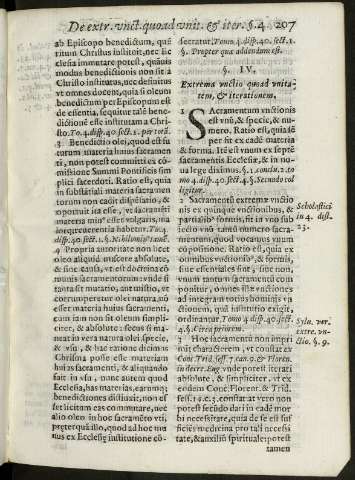 De extr. vnct. quoad vnit. & iter. §. 4 207
ab Episcopo benedictum, quā
tritum Christus instituit, nec Ec
clesia immutare potest, quāuis
modus benedictionis non sit à
Christo institutus, nec definitus
vt omnes docent, quia si oleum
benedictum per Episcopum est
de essentia, sequitur talē bene-
dictionē esse institutam a Chri-
sto. To. 4. disp. 40. sect. 1. per totā.
3 Benedictio olei, quod est fu
turum materia huius sacramen
ti, non potest committi ex cō-
missione Summi Pontificis sim
plici sacerdoti. Ratio est, quia
in substātiali materia sacramen
torum non cadit dispēsatio, &
4 Propria autoritate non licet
oleo aliquid miscere absolute,
& sine causa, vt est doctrina cō
munis sacramentorum: vnde si
tanta sit mutatio, aut mistio, vt
corrumperetur olei natura, nō
esset materia huius sacramenti,
etiam non in oleum simplici-
ter, & absolute: secus si ma-
neat in vera natura olei specie,
& vsu, & hac ratione dicimus
Chrisma posse esse materiam
huius sacramenti, & aliquando
fait in vsu, nunc autem quod
Ecclesia, has materias, earumq;
benedictiones distinxit, non es-
set licitum eas commutare, nec
alio oleo in hoc sacramēto vti,
pręterquā illo, quod ad hoc mu
nus ex Ecclesię institutione cō-
secratur. Tom. 4. disp. 40. sect. 1.
§. Propter quæ addendum est.
§. IV.
Extrema vnctio quoad vnita-
tem, & iterationem.
1 SAcramentum vnctionis
est vnū, & specie, & nu-
mero. Ratio est, quia sē
per sit ex eadē materia
& forma. Itē est vnum ex septē
sacramentis Ecclesiæ, & in no-
ua lege diximus. §. 1. conclu. 2. to
mo 4. disp. 40. sect. 4. §. Secundo col
ligitur.
2 Sacramentū extremæ vnctio
nis ex quinque vnctionibus, &
partialibꝰ formis, sit in vno sub
iecto vnū tantum numero sacra
mentum, quod vocamus vnum
cōpositione. Ratio est, quia ex
omnibus vnctionibꝰ, & formis,
siue essentiales sint, siue non,
vnum tantum sacramentum cō
ponitur, & omnes illæ vnctiones
ad integram totius hominis vn
ctionem, quā institutio exigit,
ordinantur. Tomo 4. disp. 40. sect.
4. §. Circa priorem.
3 Hoc sacramentū non impri
mit characterem, vt constat ex
Conc. Trid. sess. 7. can. 9. & Floren.
in decre. Eug. vnde potest iterati
absolute, & simpliciter. vt ex
eodem Conc. Florent. & Trid.
sess. 14. c. 3. constat at vero non
potest secūdo dari in eadē mor
bi necessitate, quia de se est suf
ficiēs medicina pro tali necessi
tate, & auxiliū spirituale: potest
tamen
Scholastici
in 4. dist.
23.
Sylu. ver.
extre. vn-
ctio. §. 9.